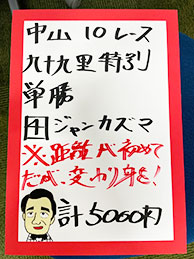 中山10レース
九十九里特別
単勝
田ジャンカズマ
※距離が初めて
だが、変わり身を!
計5000円